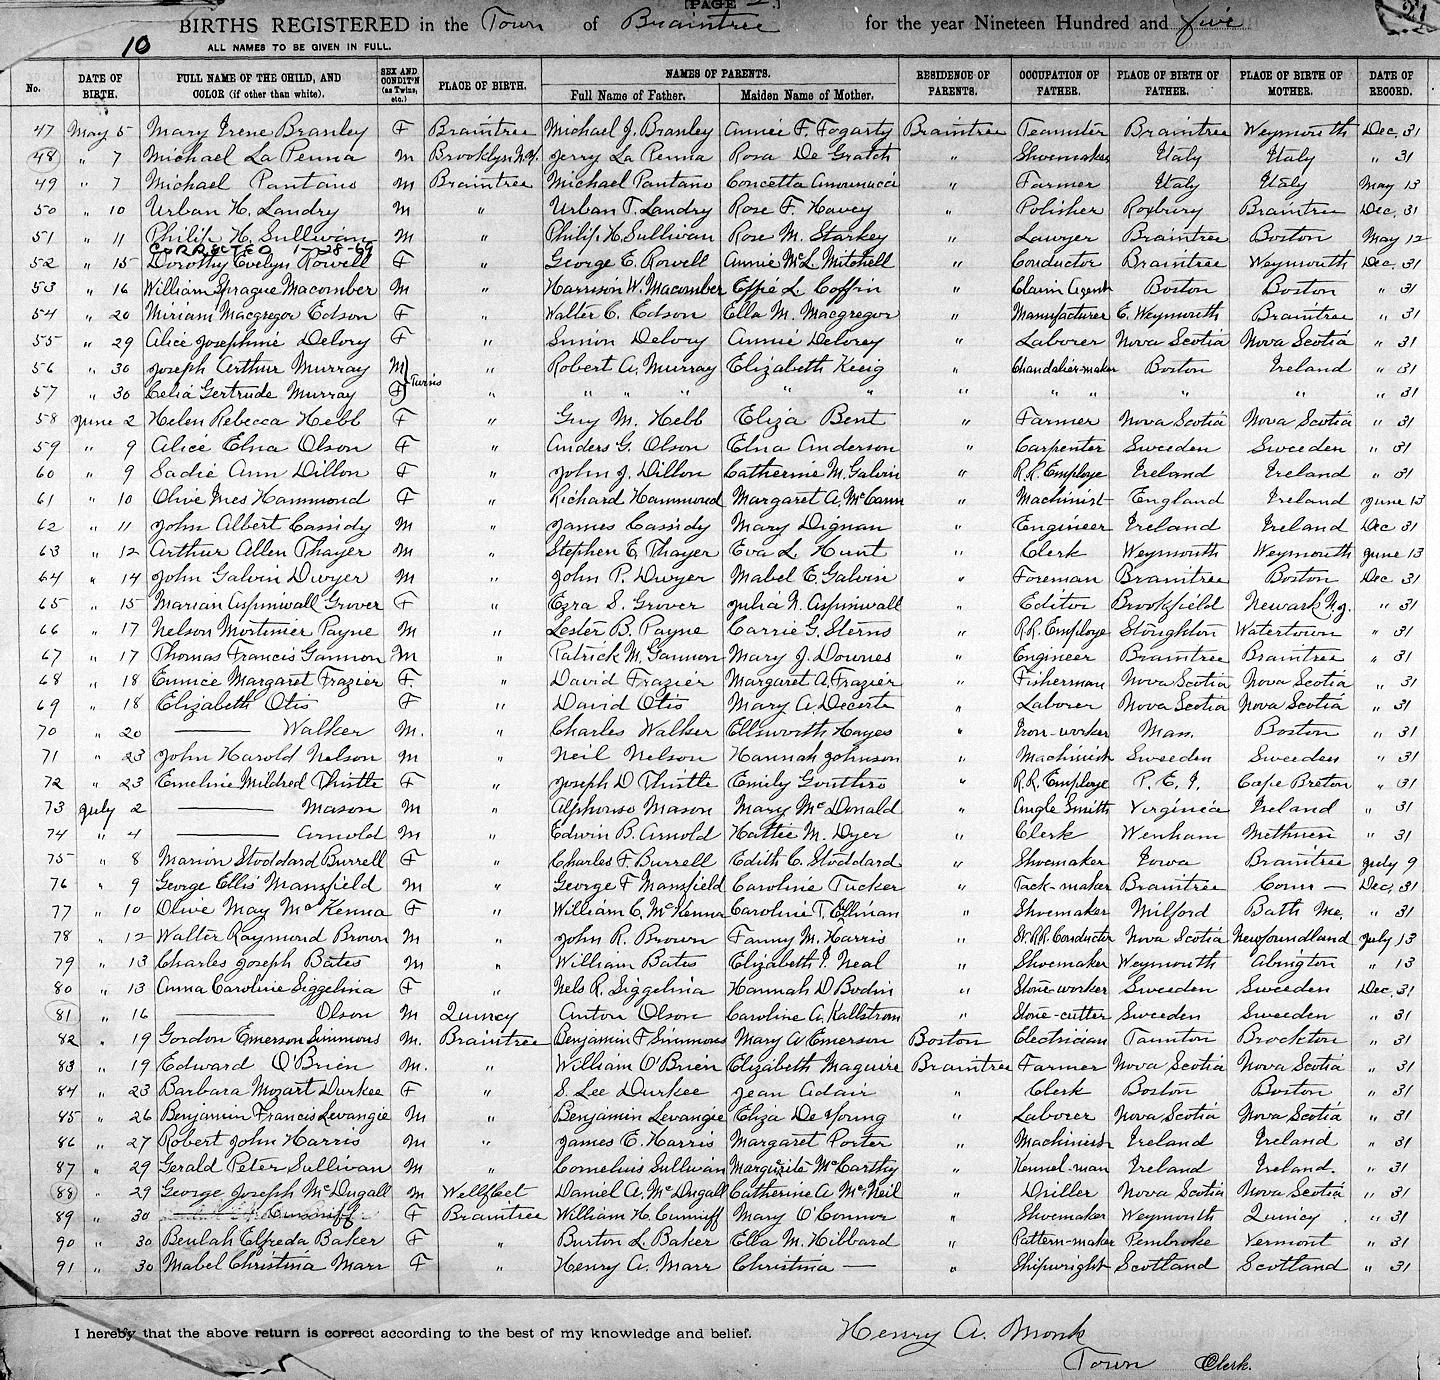 [PAGE 2.]
BIRTHS REGISTERED in the Town of Braintree for the year Nineteen Hundred and five
21
10 ALL NAMES TO BE GIVEN IN FULL.
No. DATE OF BIRTH. FULL NAME OF THE CHILD, AND COLOR (if other than white). SEX AND CONDIT'N (as Twins, etc.) PLACE OF BIRTH. NAMES OF PARENTS. Full Name of Father. Maiden Name of Mother. RESIDENCE OF PARENTS. OCCUPATION OF FATHER. PLACE OF BIRTH OF FATHER. PLACE OF BIRTH OF MOTHER. DATE OF RECORD.
47 May 5 Mary Irene Branley F Braintree Michael J. Branley Annie F. Fogarty Braintree Teamster Braintree Weymouth Dec, 31
48 " 7 Michael La Penna M Brooklyn N.Y. Jerry La Penna Rosa De Gratch " Shoemaker Italy Italy " 31
49 " 7 Michael Pantano M Braintree Michael Pantano Concetta " Farmer Italy Italy May 13
50 " 10 Urban H. Landry M " Urban T. Landry Rose F. Havey " Polisher Roxbury Braintree Dec, 31
51 " 11 Philip H. Sullivan M " Philip H. Sullivan Rose M. Starkey " Lawyer Braintree Boston May 12
CORRECTED 1-28-69
52 " 15 Dorothy Evelyn Rowell F " George E. Rowell Annie McL. Mitchell " Conductor Braintree Weymouth Dec, 31
53 " 16 William Sprague Macomber M " Harrison W. Macomber Effie L. Coffin " Claim Agent Boston Boston " 31
54 " 20 Miriam Macgregor Edson F " Walter C. Edson Ella M. Macgregor " Manufacturer E. Weymouth Braintree " 31
55 " 29 Alice Josephine Delory F " Simon Delory Annie Delorey " Laborer Nova Scotia Nova Scotia " 31
56 " 30 Joseph Arthur Murray M " Robert A. Murray Elizabeth Keig " Chandelier-maker Boston Ireland " 31
57 " 30 Celia Gertrude Murray F Twins " " " " " " " " " " " 31
58 June 2 Helen Rebecca Hebb F " Guy M. Hebb Eliza Bent " Farmer Nova Scotia Nova Scotia " 31
59 " 9 Alice Elna Olson F " Anders G. Olson Elna Anderson " Carpenter Sweeden Sweeden " 31
60 " 9 Sadie Ann Dillon F " John J. Dillon Catherine M. Galvin " R.R. Employe Ireland Ireland " 31
61 " 10 Olive Ines Hammond F " Richard Hammond Margaret A. McCann " Machinist England Ireland June 13
62 " 11 John Albert Cassidy M " James Cassidy Mary Dignan " Engineer Ireland Ireland Dec 31
63 " 12 Arthur Allen Thayer M " Stephen E. Thayer Eva L. Hunt " Clerk Weymouth Weymouth June 13
64 " 14 John Galvin Dwyer M " John P. Dwyer Mabel E. Galvin " Foreman Braintree Boston Dec 31
65 " 15 Marian Aspinwall Grover F " Ezra S. Grover Julia N. Aspinwall " Editor Brookfield Newark N.J. " 31
66 " 17 Nelson Mortimer Payne M " Lester B. Payne Carrie G. Sterns " R.R. Employe Stoughton Watertown " 31
67 " 17 Thomas Francis Gannon M " Patrick M. Gannon Mary J. Downes " Engineer Braintree Braintree " 31
68 " 18 Eunice Margaret Frazier F " David Frazier Margaret A. Frazier " Fisherman Nova Scotia Nova Scotia " 31
69 " 18 Elizabeth Otis F " David Otis Mary A. Decerte " Laborer Nova Scotia Nova Scotia " 31
70 " 20 —— Walker M. " Charles Walker Ellsworth Hayes " Iron-worker Mass. Boston " 31
71 " 23 John Harold Nelson M " Neil Nelson Hannah Johnson " Machinist Sweeden Sweeden " 31
72 " 23 Emeline Mildred Thistle F " Joseph D. Thistle Emily Gouthro " R.R. Employe P. E. I. Cape Breton " 31
73 July 2 —— Mason M " Alphonso Mason Mary McDonald " Angle Smith Virginia Ireland " 31
74 " 4 —— Arnold M " Edwin B. Arnold Hattie M. Dyer " Clerk Wenham Methuen " 31
75 " 8 Marion Stoddard Burrell F " Charles F. Burrell Edith C. Stoddard " Shoemaker Iowa Braintree July 9
76 " 9 George Ellis Mansfield M " George F Mansfield Caroline Tucker " Tack-maker Braintree Conn — Dec, 31
77 " 10 Olive May McKenna F " William C. McKenna Caroline T. Ellinan " Shoemaker Milford Bath Me, " 31
78 " 12 Walter Raymond Brown M " John R. Brown Fanny M. Harris " St. R.R. Conductor Nova Scotia Newfoundland July 13
79 " 13 Charles Joseph Bates M " William Bates Elizabeth I. Neal " Shoemaker Weymouth Abington " 13
80 " 13 Anna Caroline Siggelina F " Nels R. Siggelina Hannah D Bodin " Stone-worker Sweeden Sweeden Dec, 31
81 " 16 —— Olson M Quincy Anton Olson Caroline A. Kallstrom " Stone-cutter Sweeden Sweeden " 31
82 " 19 Gordon Emerson Simmons M. Braintree Benjamin F Simmons Mary A Emerson Boston Electrician Taunton Brockton " 31
83 " 19 Edward O'Brien M. " William O'Brien Elizabeth Maguire Braintree Farmer Nova Scotia Nova Scotia " 31
84 " 23 Barbara Mozart Durkee F " S. Lee Durkee Jean Adair " Clerk Boston Boston " 31
85 " 26 Benjamin Francis Levangie M " Benjamin Levangie Eliza De Young " Laborer Nova Scotia Nova Scotia " 31
86 " 27 Robert John Harris M " James E. Harris Margaret Porter " Machinist Ireland Ireland " 31
87 " 29 Gerald Peter Sullivan M " Cornelius Sullivan Marguerite McCarthy " Kennel-man Ireland Ireland. " 31
88 " 29 George Joseph McDugall M Wellfleet Daniel A. McDugall Catherine A McNeil " Driller Nova Scotia Nova Scotia " 31
89 " 30 —— Cunniff F Braintree William H. Cunniff Mary O'Connor " Shoemaker Weymouth Quincy " 31
90 " 30 Beulah Elfreda Baker F " Burton L. Baker Ella M. Hibbard " Pattern-maker Pembroke Vermont " 31
91 " 30 Mabel Christina Marr F " Henry A. Marr Christina — " Shipwright Scotland Scotland " 31
I hereby that the above return is correct according to the best of my knowledge and belief. Henry A. Monk
Town Clerk.